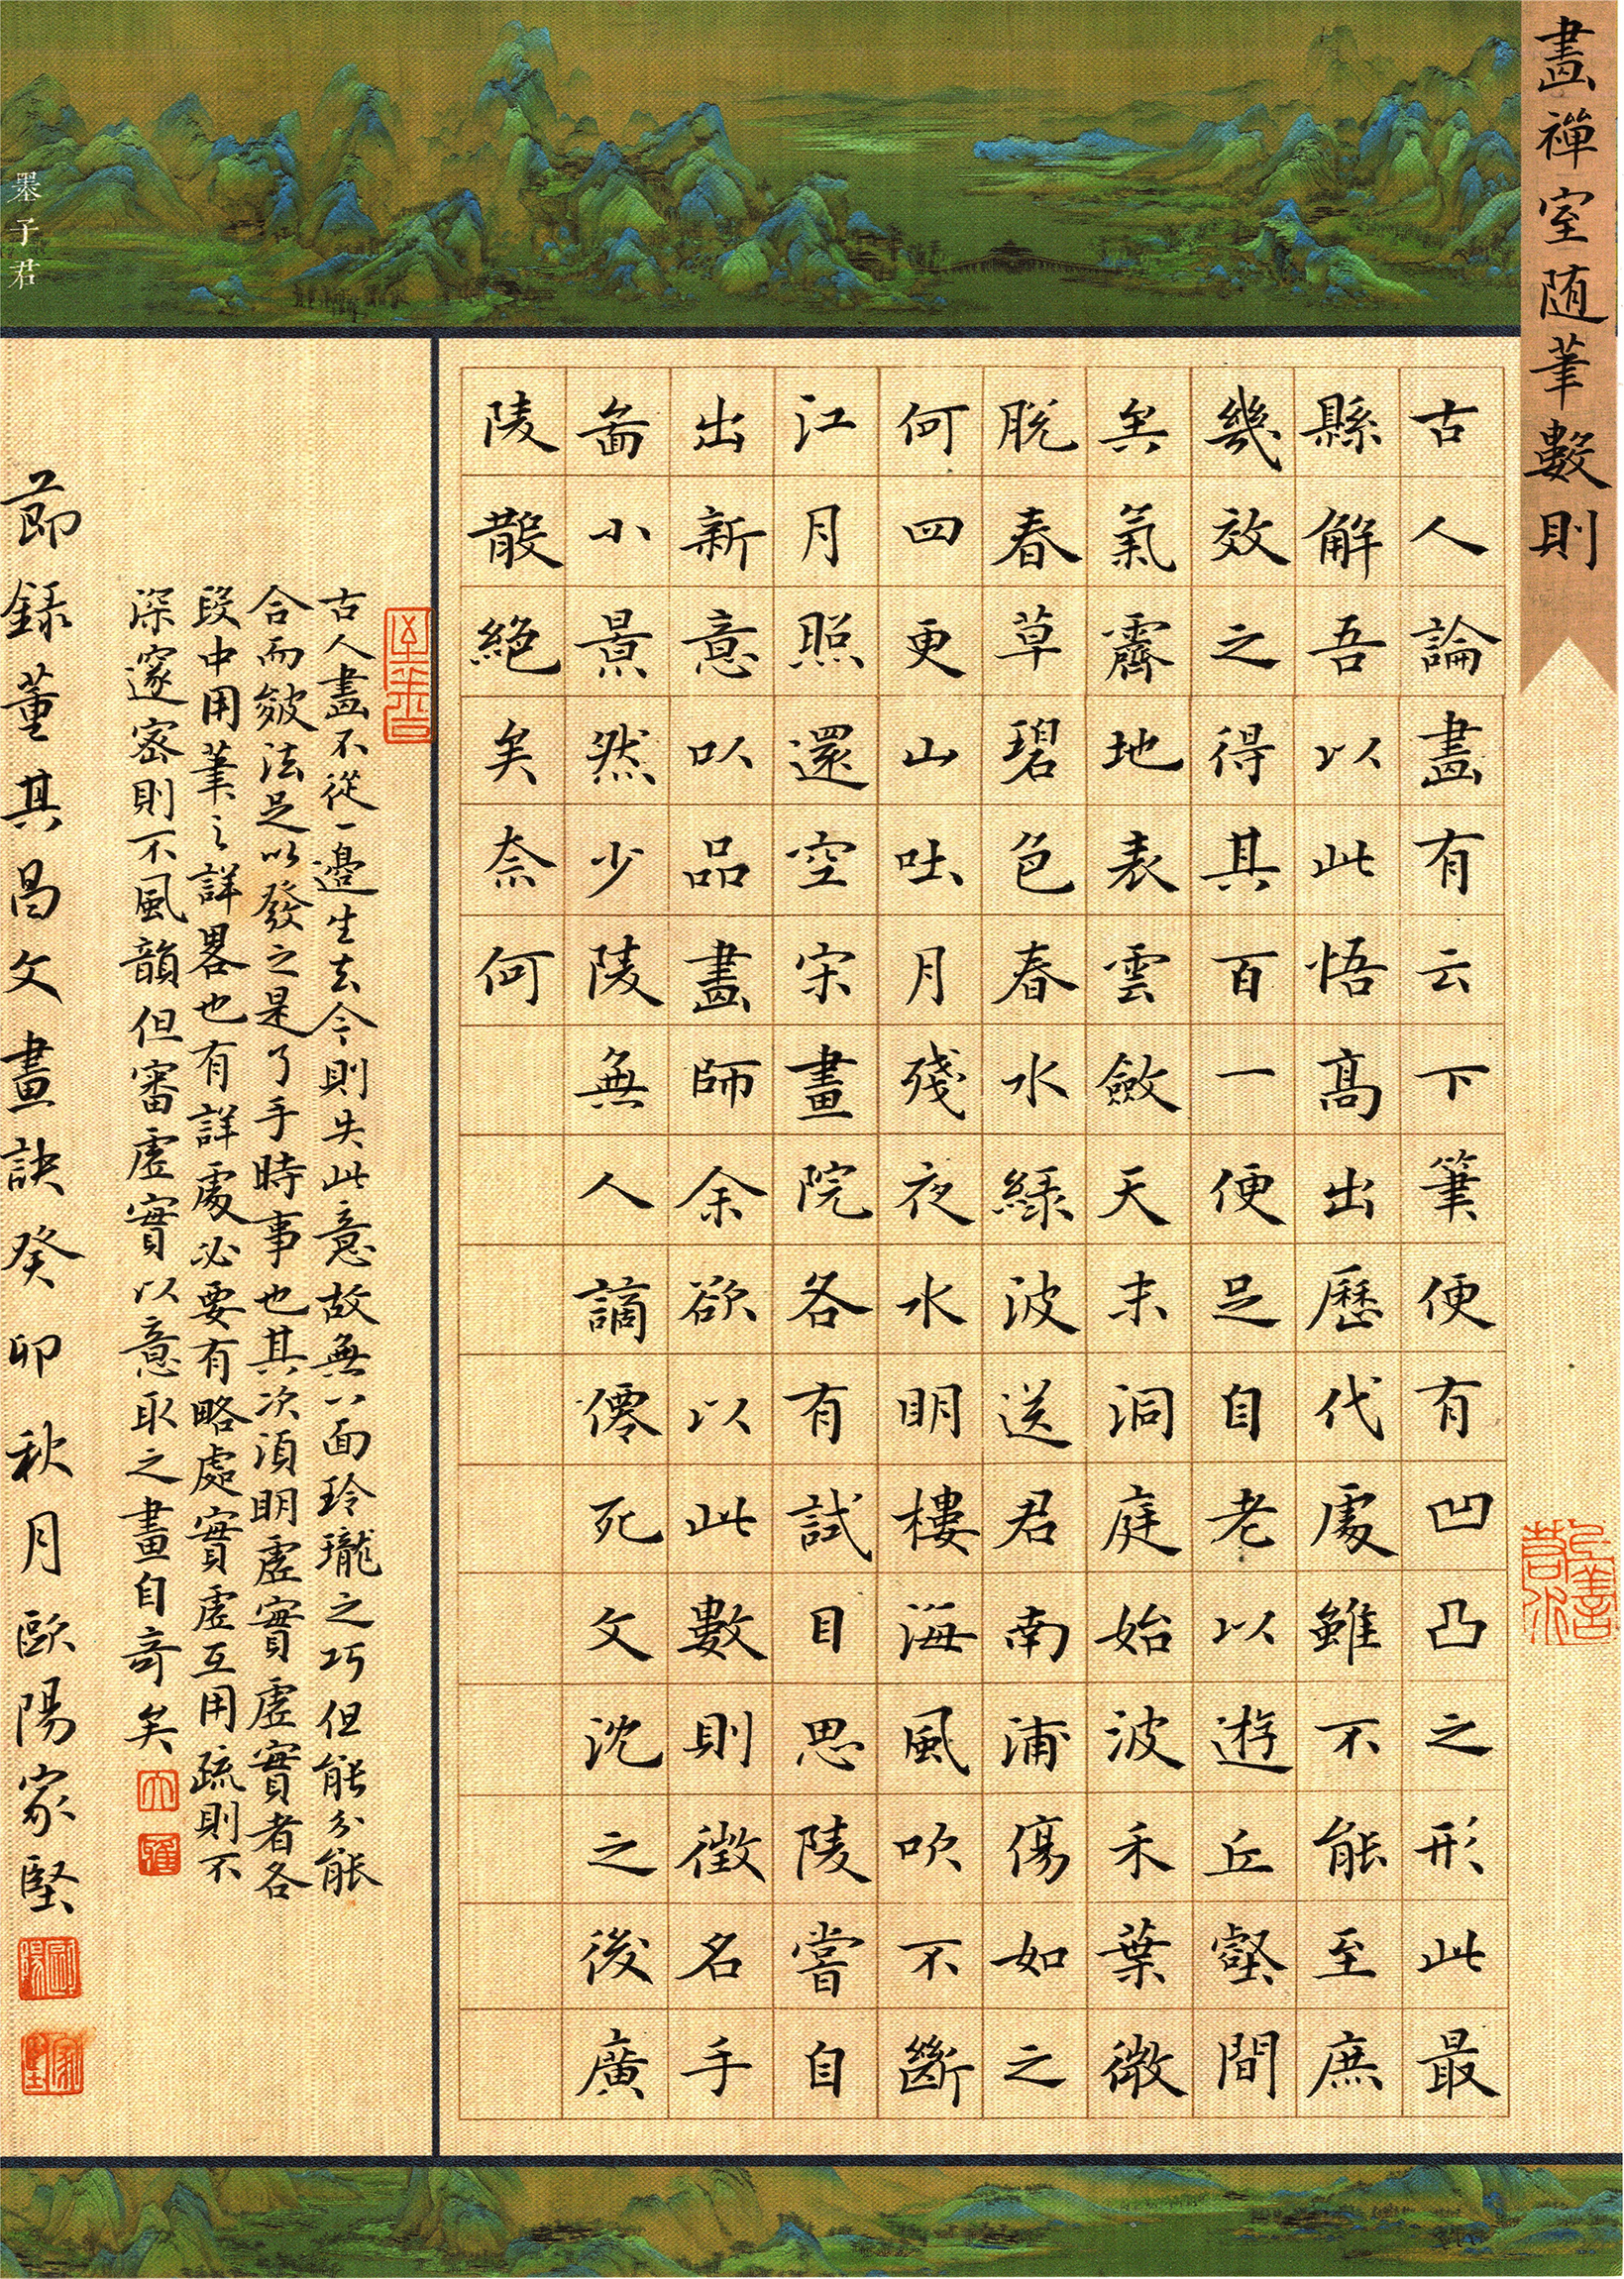 畫禪室随筆數則
古人論畫有云下筆便有凹凸之形此最
縣解吾以此悟髙出歷代處雖不能至庶
幾效之得其百一便足自老以遊丘壑間
矣氣霽地表雲斂天末洞庭始波禾葉微
脱春草碧色春水緑波送君南浦傷如之
何四更山吐月殘夜水明樓海風吹不斷
江月照還空宋畫院各有試目思陵嘗自
出新意以品畫師余欲以此數則徵名手
畵小景然少陵無人謫僊死文沈之後廣
陵散絶矣奈何
古人畫不從一邊生去今則失此意故無八面玲瓏之巧但能分能
合而皴法足以發之是了手時事也其次須明虛實虛實者各
段中用筆之詳畧也有詳處必要有略處實虛互用疏則不
深邃密則不風韻但審虛實以意取之畫自奇矣
節錄董其昌文畫訣癸卯秋月歐陽家堅
墨子君
上善若水
歐陽
家堅